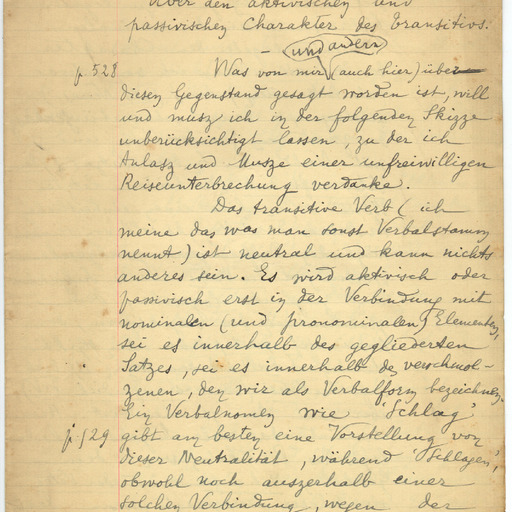 Über den aktivischen und
passivischen Charakter des Transitivs.
und andern
p. 528 Was von mir (auch hier) über
diesen Gegenstand gesagt worden ist, will
und musz ich in der folgenden Skizze
unberücksichtigt lassen, zu der ich
Anlasz und Musze einer unfreiwilligen
Reiseunterbrechung verdanke.
Das transitive Verb (ich
meine das was man sonst Verbalstamm
nennt) ist neutral und kann nichts
anderes sein. Es wird aktivisch oder
passivisch erst in der Verbindung mit
nominalen (und pronominalen) Elementen,
sei es innerhalb des gegliederten
Satzes, sei es innerhalb des verschmol-
zenen, den wir als Verbalform bezeichnen.
Ein Verbalnomen wie 'Schlag'
p. 529 gibt am besten eine Vorstellung von
dieser Neutralität, während 'Schlagen',
obwohl noch auszerhalb einer
solchen Verbindung, wegen der